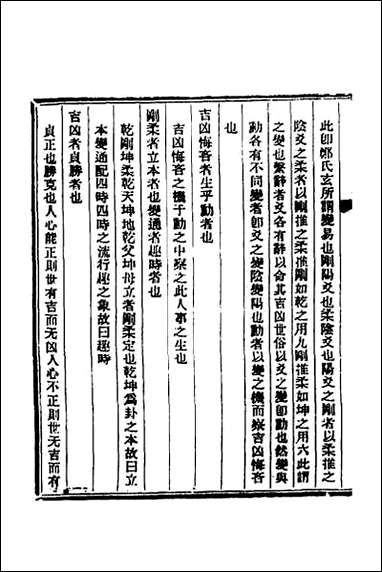 此卽鄭氏玄所謂變易也剛陽爻也柔陰爻也陽爻之剛者以柔推之
陰爻之柔者以剛推之柔推剛如乾之用九剛推柔如坤之用六此謂
之變也繫辭者爻各有辭以命其吉凶世俗以爻之變卽動也然變與
動各有不同變者卽爻之變陰變陽也動者以變之機而察吉凶悔吝
也
吉凶悔吝者生乎動者也
吉凶悔吝之機于動之中察之此人事之生也
剛柔者立本者也變通者趣時者也
乾剛坤柔乾天坤地乾父坤母立者剛柔定也乾坤爲卦之本故曰立
本變通配四時四時之流行趣之象故曰趣時
吉凶者貞勝者也
貞正也勝克也人心能正則世有吉而无凶人心不正則世无吉而有